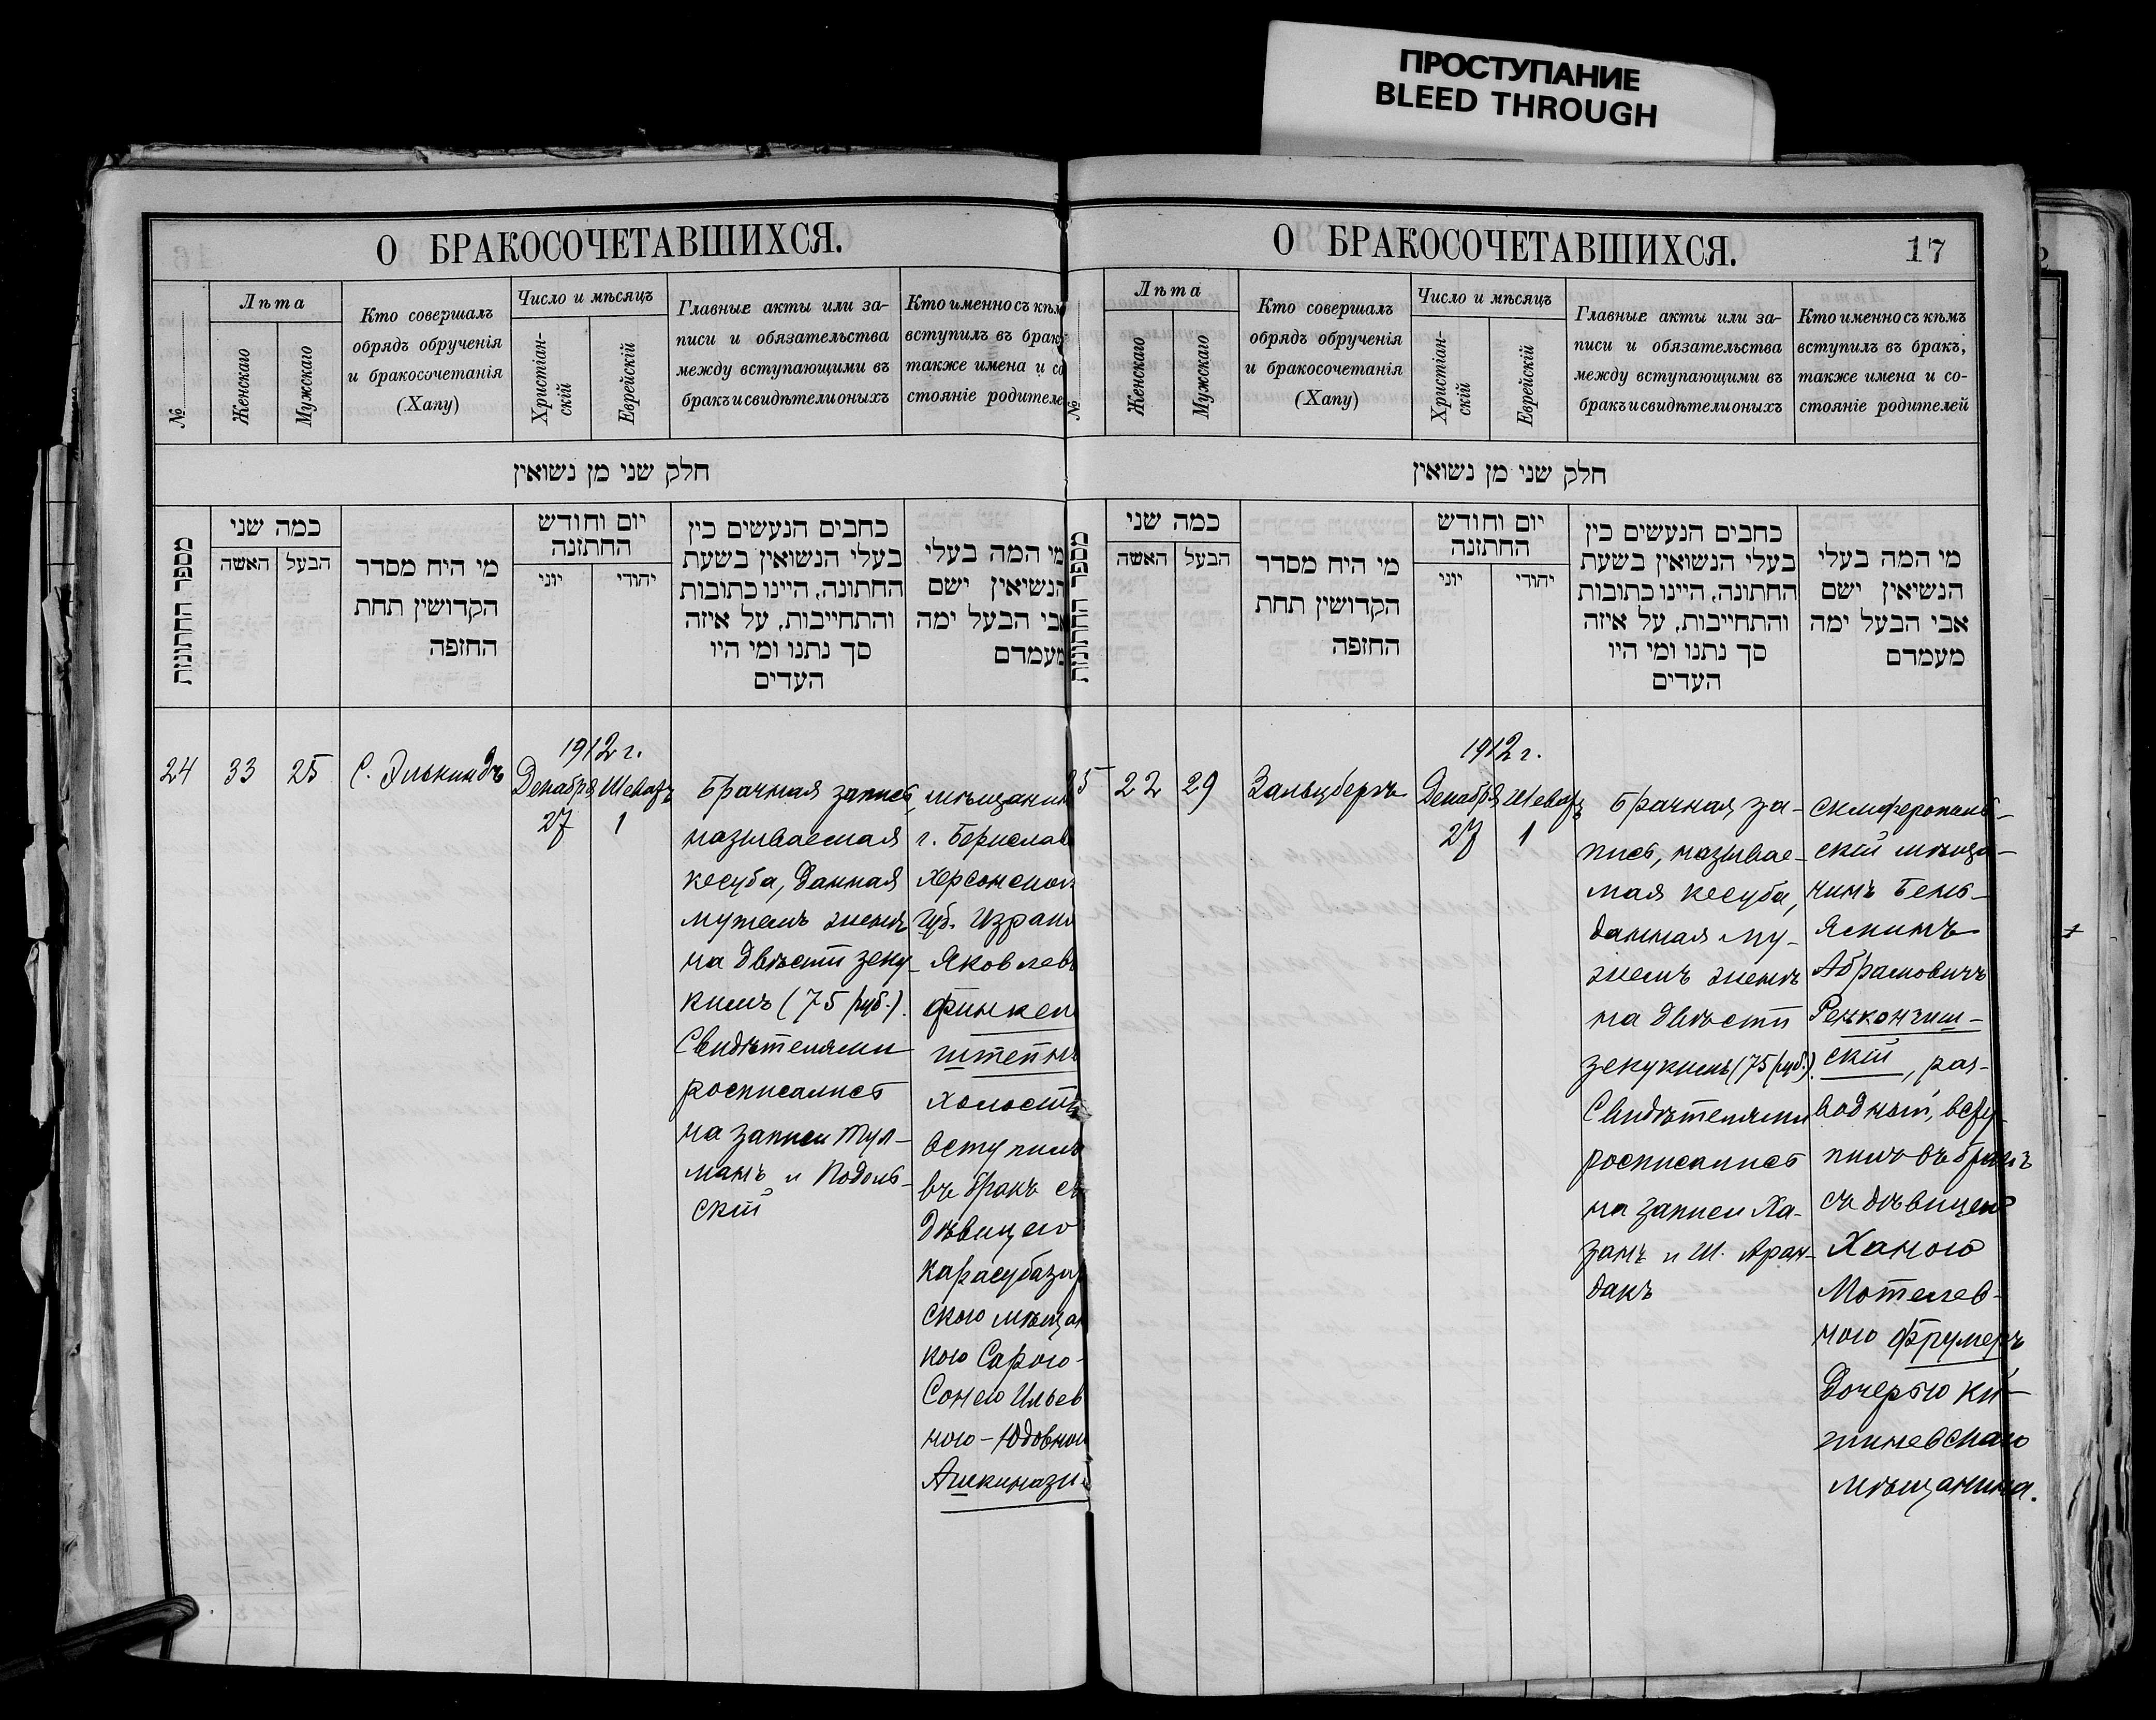 ПРОСТУПАНИЕ
BLEED THROUGH
О БРАКОСОЧЕТАВШИХСЯ.
№
Лѣта
Женскаго
Мужскаго
Кто совершалъ
обрядъ обрученія
и бракосочетанія
(Хапу)
Число и мѣсяцъ
Христіан-
скій
Еврейскій
Главные акты или за-
писи и обязательства
между вступающими въ
бракъ и свидѣтели оныхъ
Кто именно съ кѣм
вступилъ въ брак
также имена и со
стояніе родителе
חלק שני מן נשואין
מספר החתונות
כמה שני
האשה
הבעל
מי היח מסדר
הקדושין תחת
החזפה
יום וחודש
החתזנה
יוני
יהודי
כחבים הנעשים כין
בעלי הנשואין בשעת
החתונה, היינו כתובות
והתחייבות, על איזה
סך נתנו ומי היו
העדים
מי המה בעלי
הנשיאין ישם
אבי הבעל ימה
מעמדם
24
33
25
С. Элькиндъ
1912 г.
Декабря
27
Шеватъ
1
Брачная запись,
называемая
кесуба, данная
мужемъ женѣ
на двѣсти зеку-
кимъ (75 руб.).
Свидѣтелями
росписались
на записи Тул-
манъ и Подоль-
скій
мѣщанин
г. Берислав
Херсонской
губ. Израил
Яковлев
Финкел
штейнъ
холостъ
вступилъ
въ бракъ съ
дѣвицею
карасубазар
скою мѣщан
кою Сарою-
Сонею Ильев
ною-Юдовною
Ашкинази
О БРАКОСОЧЕТАВШИХСЯ.
17
№
Лѣта
Женскаго
Мужскаго
Кто совершалъ
обрядъ обрученія
и бракосочетанія
(Хапу)
Число и мѣсяцъ
Христіан-
скій
Еврейскій
Главные акты или за-
писи и обязательства
между вступающими въ
бракъ и свидѣтели оныхъ
Кто именно съ кѣмъ
вступилъ въ бракъ,
также имена и со-
стояніе родителей
חלק שני מן נשואין
מספר החתונות
כמה שני
האשה
הבעל
מי היח מסדר
הקדושין תחת
החזפה
יום וחודש
החתזנה
יוני
יהודי
כחבים הנעשים כין
בעלי הנשואין בשעת
החתונה, היינו כתובות
והתחייבות, על איזה
סך נתנו ומי היו
העדים
מי המה בעלי
הנשיאין ישם
אבי הבעל ימה
מעמדם
25
22
29
Зальцбергъ
1912 г.
Декабря
27
Шеватъ
1
Брачная за-
пись, называе-
мая кесуба,
данная му-
жемъ женѣ
на двѣсти
зекукимъ (75 руб.).
Свидѣтелями
росписались
на записи Ха-
занъ и Ш. Аран-
дакъ
симферополь-
скій мѣща-
нинъ Бень-
яминъ
Абрамовичъ
скій, раз-
водный, всту-
пилъ въ бракъ
съ дѣвицею
Ханою
Мотелев-
ною Фрумеръ
дочерью ки-
шиневскаго
мѣщанина.